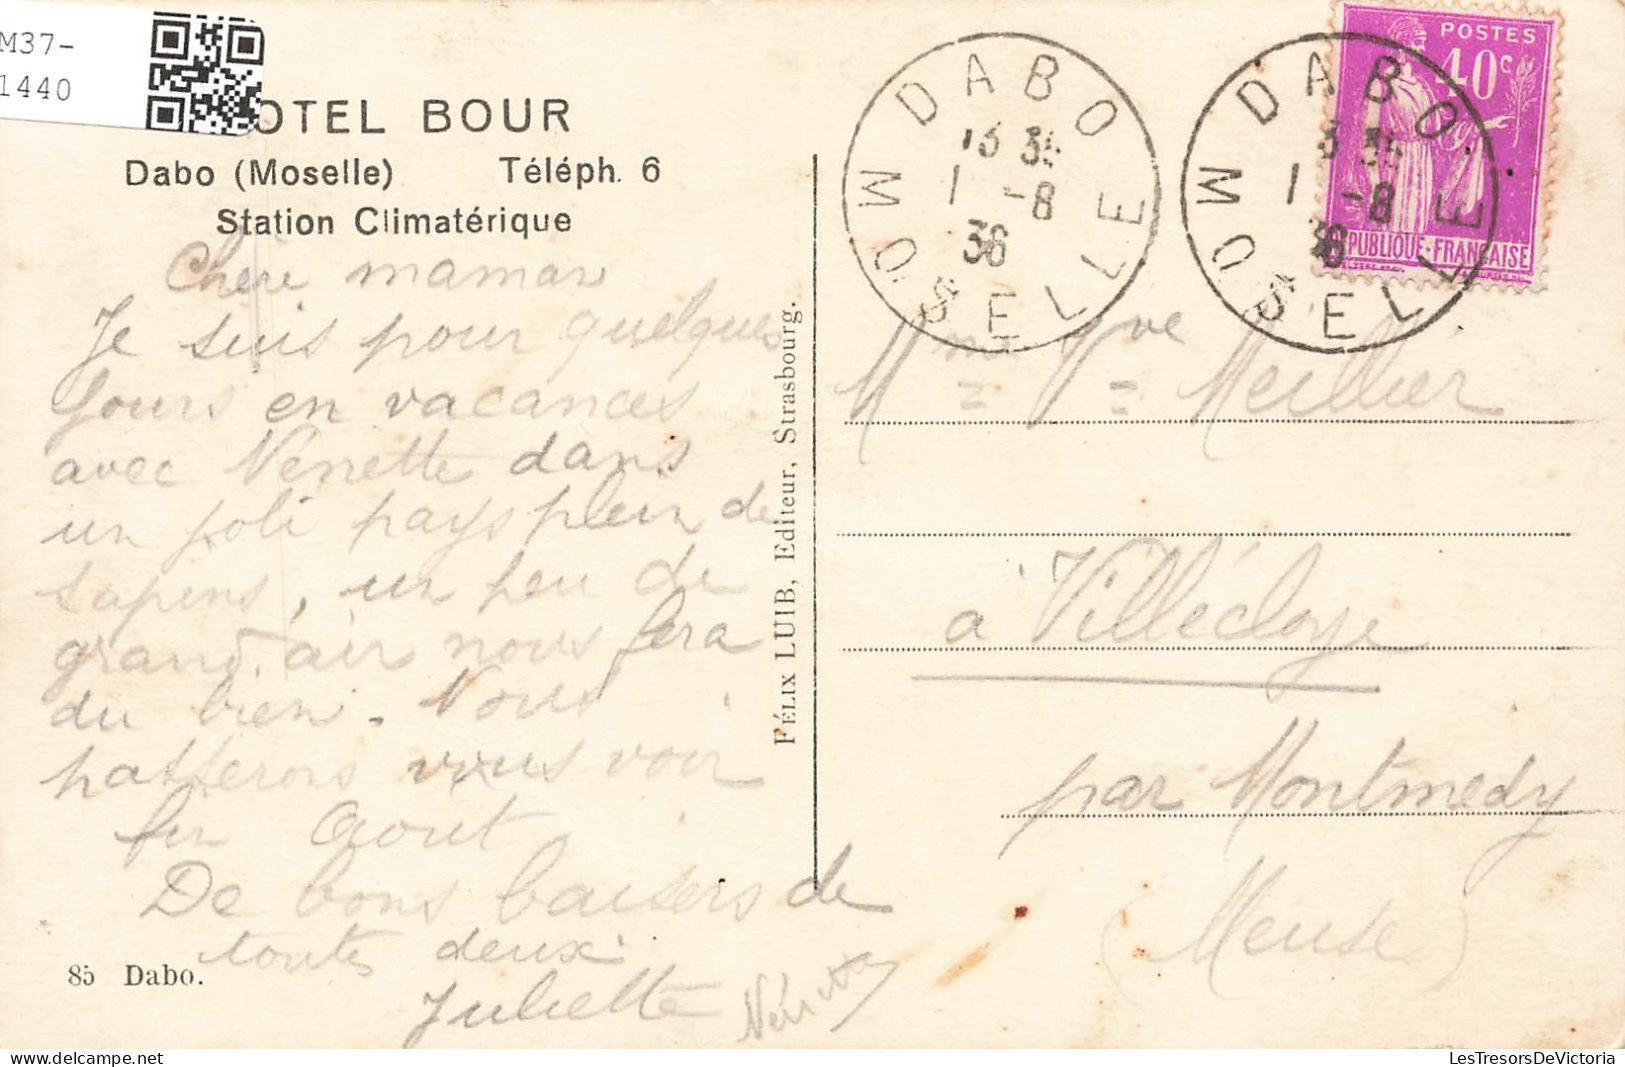 M37-
1440
HOTEL BOUR
Dabo (Moselle) Téléph. 6
Station Climatérique
Chère maman
Je suis pour quelques
jours en vacances
avec Nénette dans
un joli pays plein de
sapins, un peu de
grand air nous fera
du bien. Nous
passerons vous voir
fin Aout
De bons baisers de
toutes deux
Juliette Nénette
85 Dabo.
FÉLIX LUIB, Editeur, Strasbourg.
DABO
1 -8
36
MOSELLE
DABO
1 -8
36
MOSELLE
POSTES
40c
PUBLIQUE-FRANÇAISE
Mme Vve Meillier
à Villécloye
par Montmédy
(Meuse)
LesTresorsDeVictoria